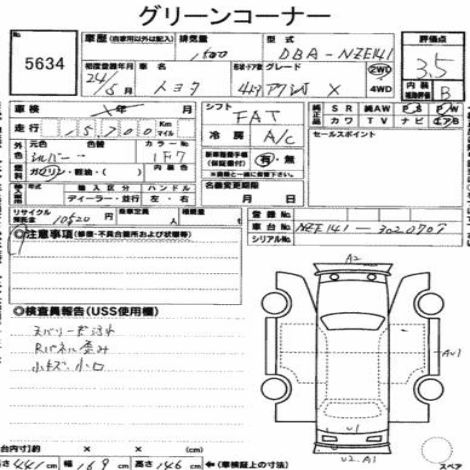 グリーンコーナー
No. 5634
車歴 (自家用以外は記入) 排気量 1500 型式 DBA-NZE141 評価点 3.5
初度登録年月 24/5月 トヨタ 形状・ドア数 グレード X 2WD 4WD 内装補助評価 B
車検 年 月 シフト FAT 純正品 SR 純AW PS PW
走行 15700 Km マイル カワ TV ナビ エアB
外色 元色 シルバー 色替 カラーNo. 1F7 冷房 A/C セールスポイント
燃料 ガソリン・軽油・( ) 内装色 新車整備手帳(保証書付) 有・無
輸入区分 ハンドル 名義変更期限
ディーラー・並行 左・右 月 日
リサイクル預託金 10520 円 乗車定員 人 積載量 Kg 登録No.
車台No. NZE141-3020707
シリアルNo.
◎注意事項 (修復・不具合箇所および状態等)
◎検査員報告 (USS使用欄)
Rパネル歪み
小キズ 小凹
A2
AU1
U1
U2.A1
台内寸(約) × × (cm)
長さ 441 cm 幅 169 cm 高さ 146 cm ←(車検証上の寸法)
スペア